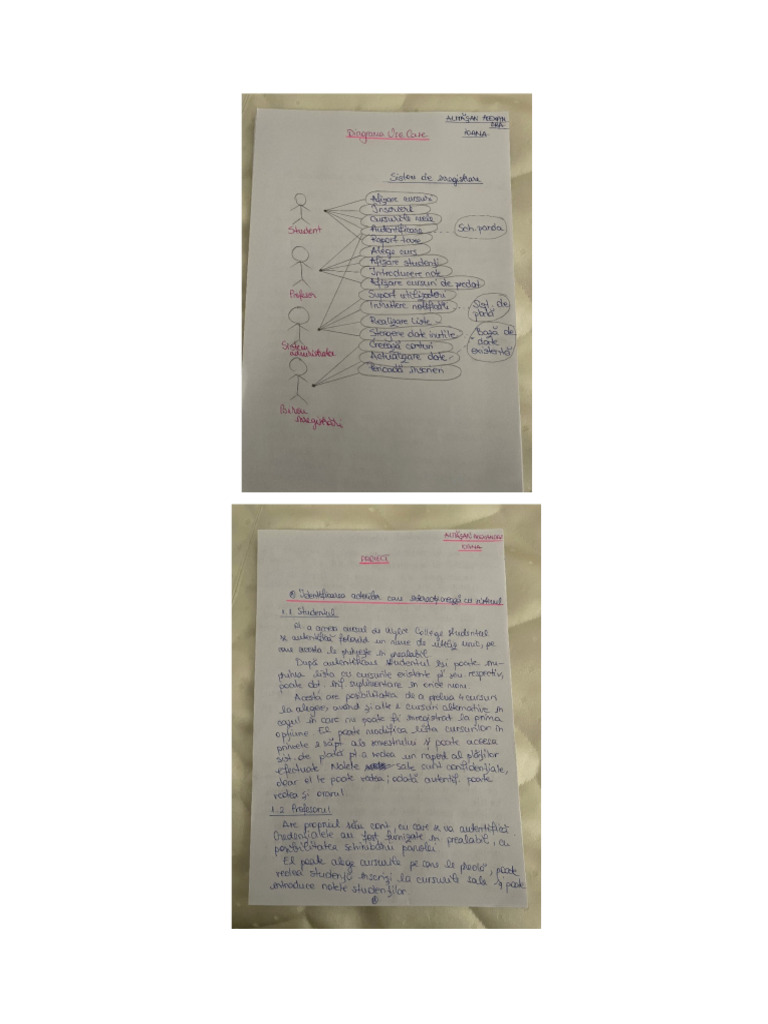 ALDĂȘAN ALEXAN
DRA
IOANA
Diagrama Use Case
Sistem de înregistrare
Afișare cursuri
Înscriere
Cursurile mele
Autentificare
Sch. parola
Student
Raport taxe
Alege curs
Afișare studenți
Introducere note
Afișare cursuri de predat
Profesor
Suport utilizatori
notificări
Sist. de
plată
Realizare liste
Ștergere date inutile
Bază de
date
existentă
Sistem
administrator
Creează conturi
Actualizare date
Perioadă înscrieri
Birou
înregistrări
IOANA
PROIECT
Identificarea actorilor care interacționează cu sistemul
1.1 Studentul
Pt a accesa cursul de College studentul
se autentifică folosind un nume de unic, pe
care acesta le primește în prealabil.
După autentificare studentul își poate im-
prima lista cu cursurile existente și sau respectiv,
poate obț. inf. suplimentare în orice mom.
Acesta are posibilitatea de a prelua 4 cursuri
la alegere, având și alte 2 cursuri alternative în
cazul în care nu poate fi înregistrat la prima
opțiune. El poate modifica lista cursurilor în
primele 2 săpt. ale semestrului și poate accesa
sist. de plată pt a vedea un raport al plăților
efectuate. Notele sale sunt confidențiale,
doar el le poate vedea; odată autentif. poate
vedea și orarul.
1.2 Profesorul
Are propriul său cont, cu care se va autentifica.
Credențialele au fost furnizate în prealabil, cu
posibilitatea schimbării parolei.
El poate alege cursurile pe care le predă, poate
vedea studenții înscriși la cursurile sale și poate
introduce notele studenților.